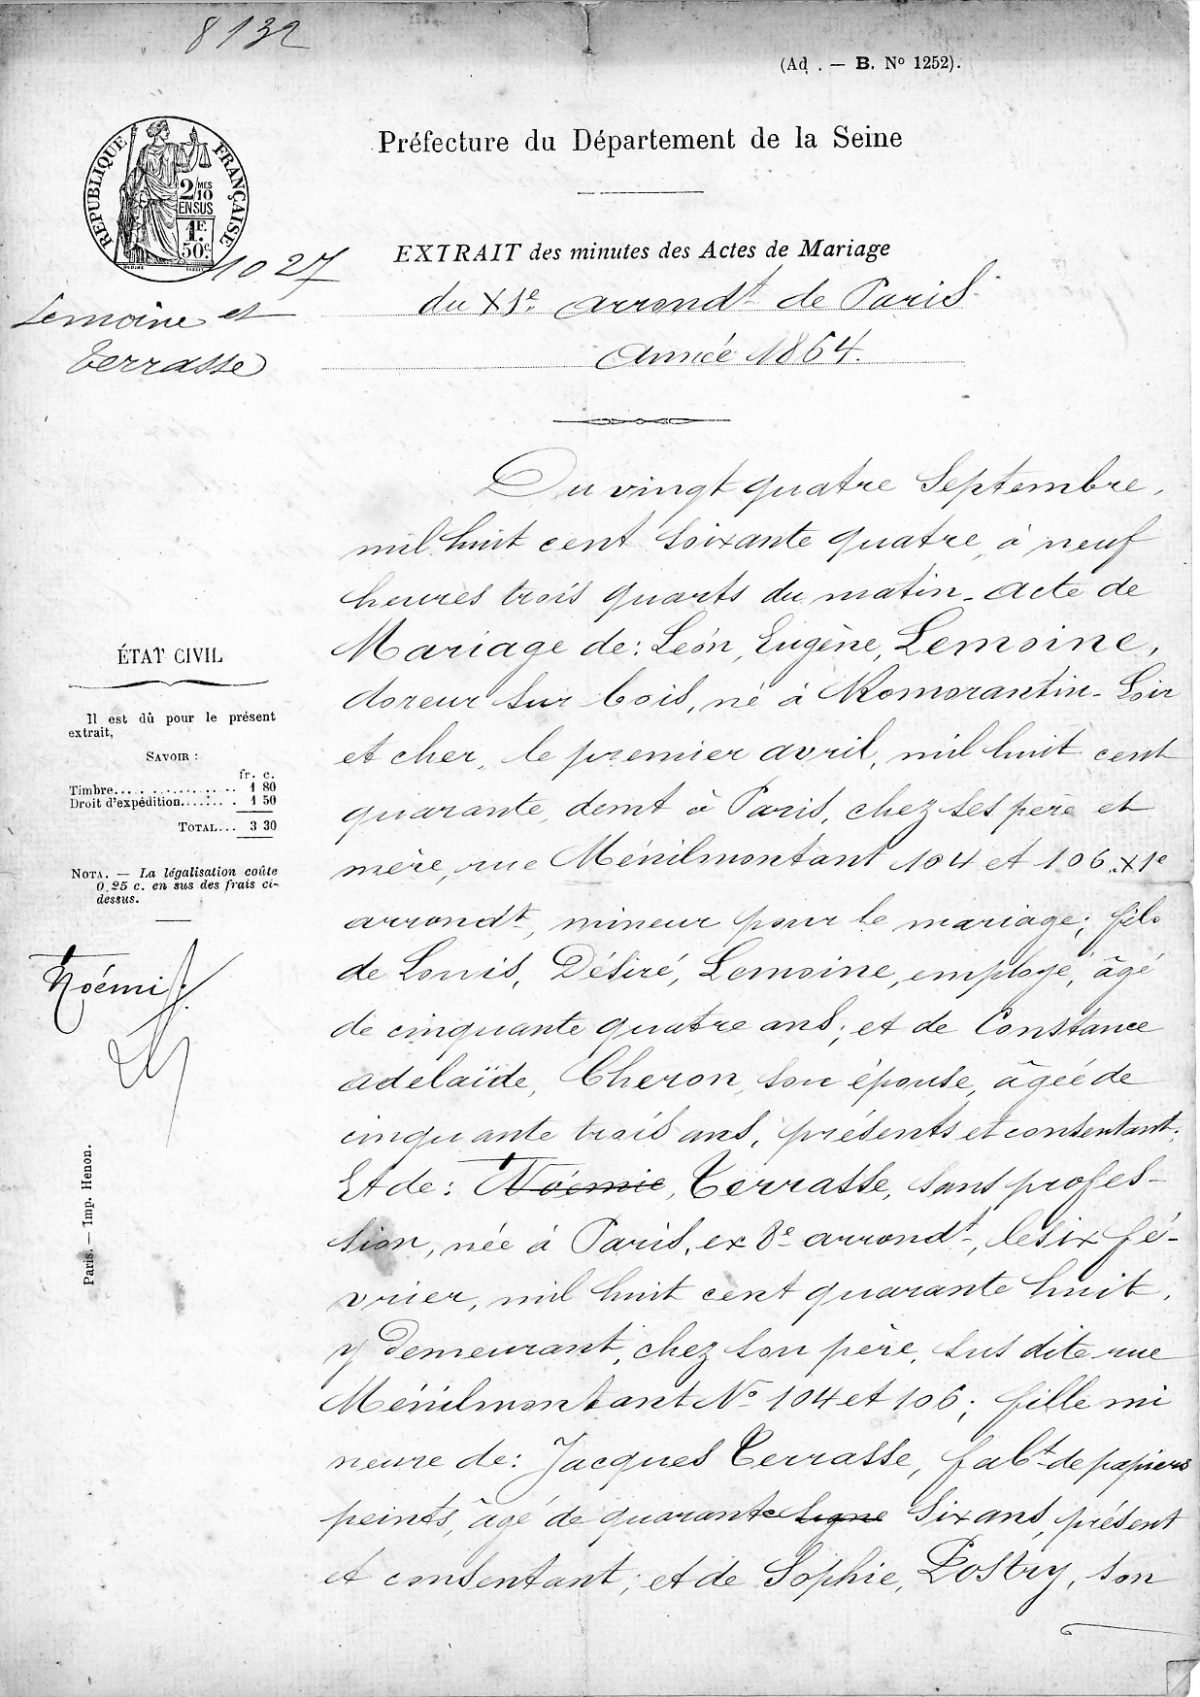 8132
(Ad. — B. Nº 1252).
Préfecture du Département de la Seine
RÉPUBLIQUE FRANÇAISE
2/MES
10
EN SUS
1F.
50c.
EXTRAIT des minutes des Actes de Mariage
du XIe. arrondt de Paris
année 1864.
1027
Lemoine et
Terrasse
Du vingt quatre Septembre,
mil huit cent soixante quatre, à neuf
heures trois quarts du matin. acte de
Mariage de: Léon, Eugène, Lemoine,
doreur sur bois, né à Romorantin. Loir
et cher, le premier avril, mil huit cent
quarante, demt à Paris, chez ses père et
mère, rue Ménilmontant 104 et 106. XIe
arrondt, mineur pour le mariage; fils
de Louis, Désiré, Lemoine, employé, âgé
de cinquante quatre ans; et de Constance
adélaïde, Cheron, son épouse, âgée de
cinquante trois ans, présents et consentant;
Et de: Noémie, Terrasse, sans profes-
sion, née à Paris, ex 8e arrondt, le six fé-
vrier, mil huit cent quarante huit,
y demeurant, chez son père, sus dite rue
Ménilmontant No 104 et 106; fille mi
neure de: Jacques Terrasse, fabt de papiers
peints, âgé de quarante ligne six ans, présent
et consentant; et de Sophie, Postry, son
ÉTAT CIVIL
Il est dû pour le présent
extrait,
SAVOIR :
fr. c.
Timbre............... 1 80
Droit d'expédition....... 1 50
TOTAL... 3 30
NOTA. — La légalisation coûte
0,25 c. en sus des frais ci-
dessus.
Noémi
Paris. — Imp. Henon.